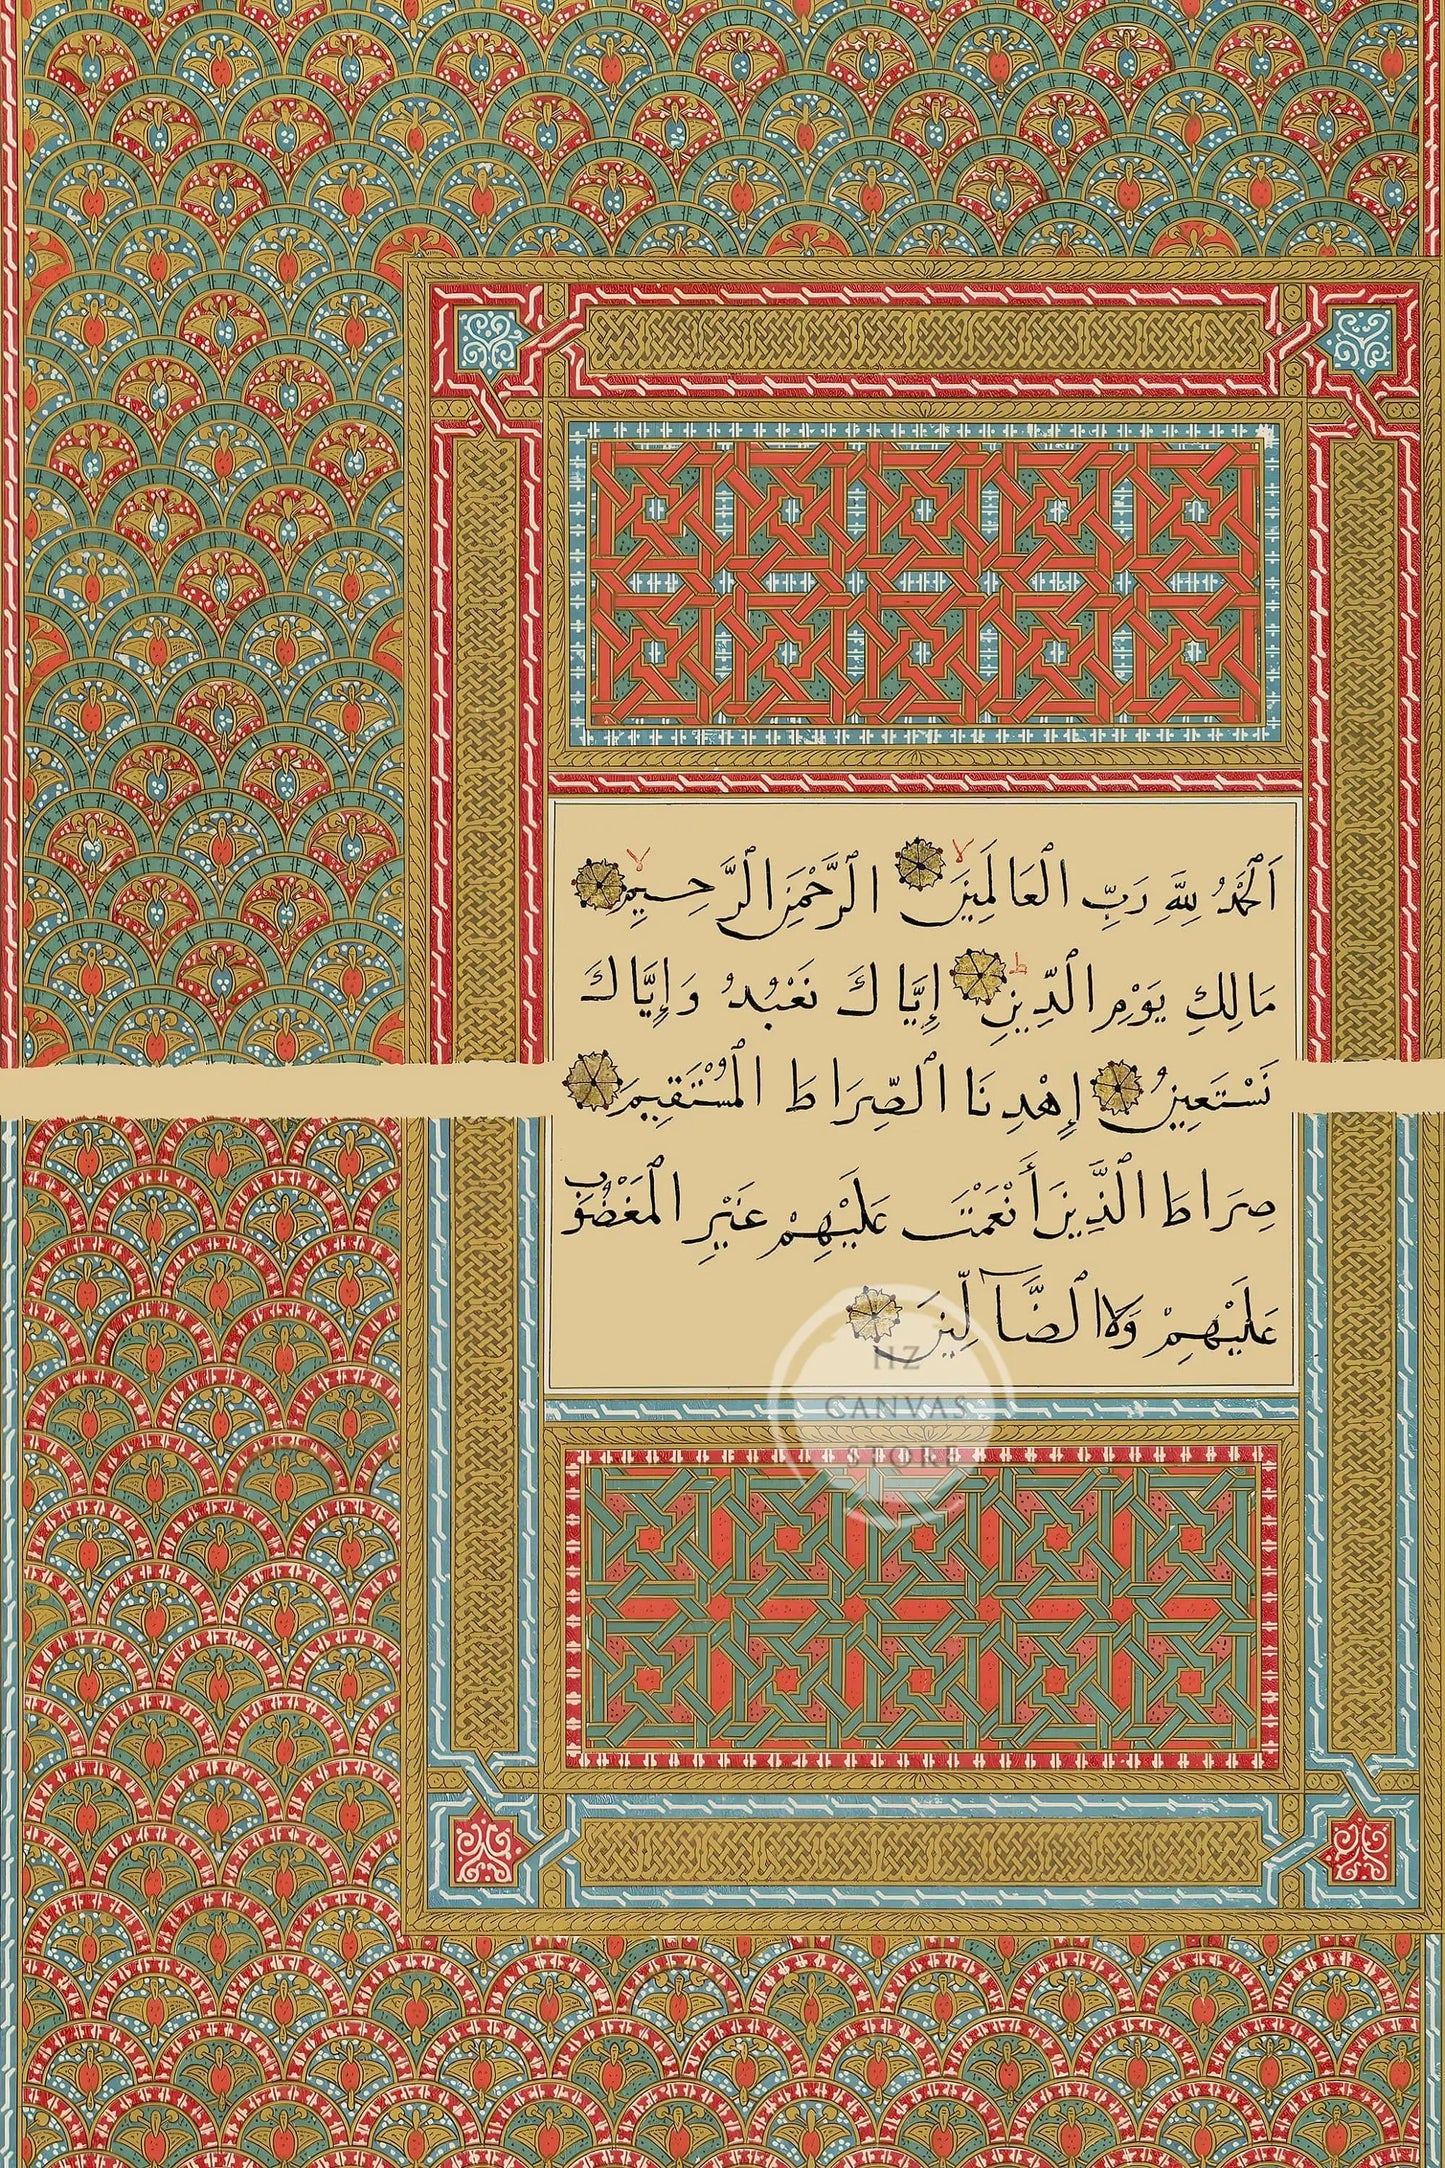 اَلْحَمْدُ لِلَّهِ رَبِّ الْعَالَمِينَ لا الرَّحْمَنِ الرَّحِيمِ لا
مَالِكِ يَوْمِ الدِّينِ ط إِيَّاكَ نَعْبُدُ وَإِيَّاكَ
نَسْتَعِينُ إِهْدِنَا الصِّرَاطَ الْمُسْتَقِيمَ
صِرَاطَ الَّذِينَ أَنْعَمْتَ عَلَيْهِمْ غَيْرِ الْمَغْضُوبِ
عَلَيْهِمْ وَلَا الضَّآلِّينَ
HZ
CANVAS
STORE